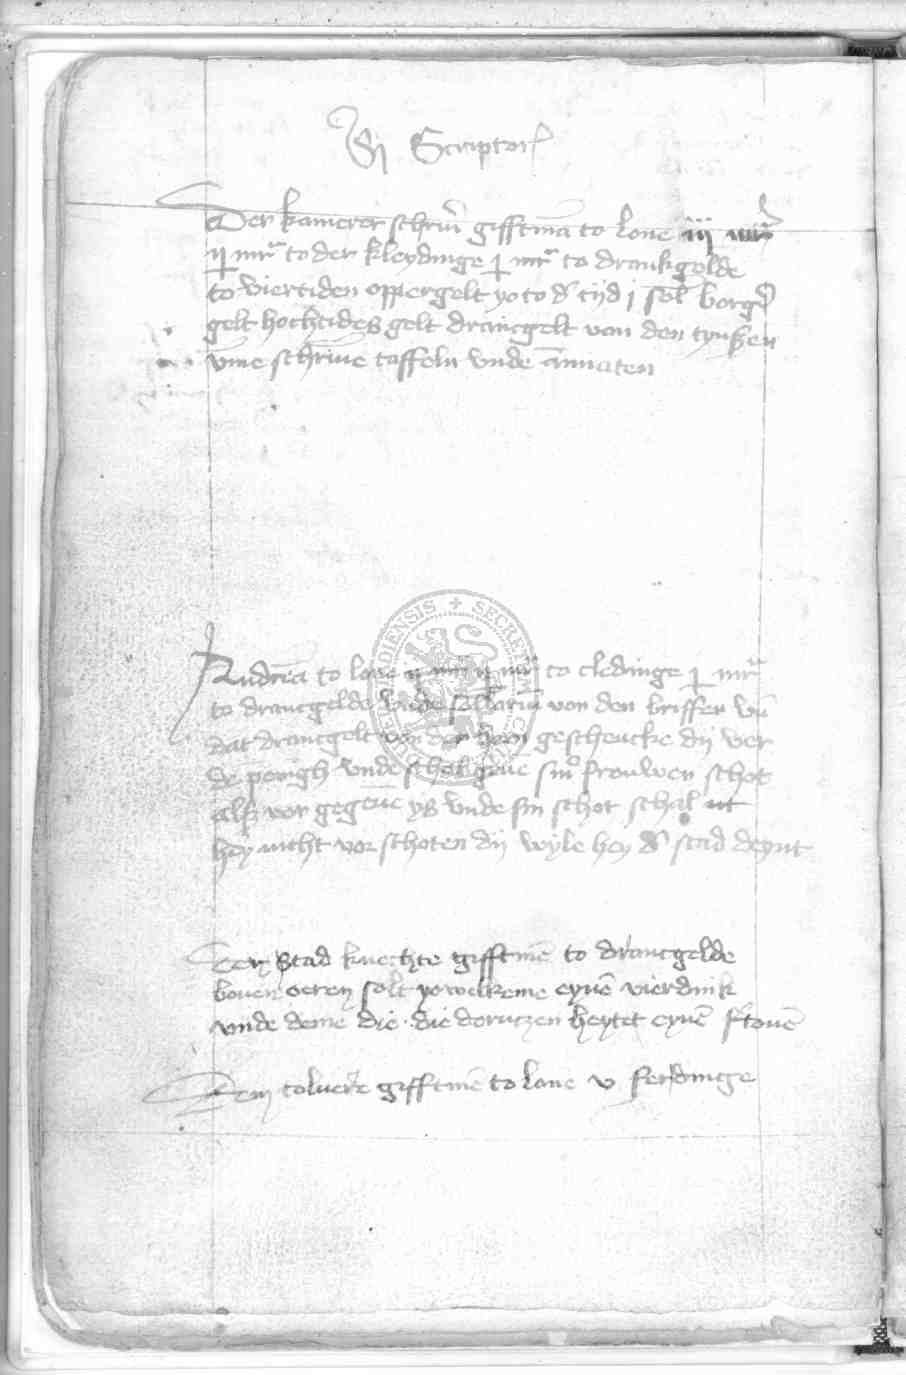 Scriptor
Der kamerer schriū gifftmā to lone iij mr
ij mr to der kleydinge j mr to drankgelde
to viertiden oppergelt yo to d tijd j sol borg
gelt hochtides gelt drancgelt van den tynsen
vme schrīue taffeln vnde annaten
Andrea to lone ij mr to cledinge j mr
to drancgelde vnde von den briffen vn
dat drancgelt von der geschencke dij wer
de penigh vnde schal geue sin frouwen schot
alsz vor gegeue ys vnde sin schot schal
hey nicht vor schoten dij wyle hey d stad deynt
Den Stad knechte gifftmē to drancgelde
bouen oeren solt yowelkeme eynē vierdink
vnde deme die die dorutzen heytet eynē
Dem tolnere gifftmē to lone v ferdinge